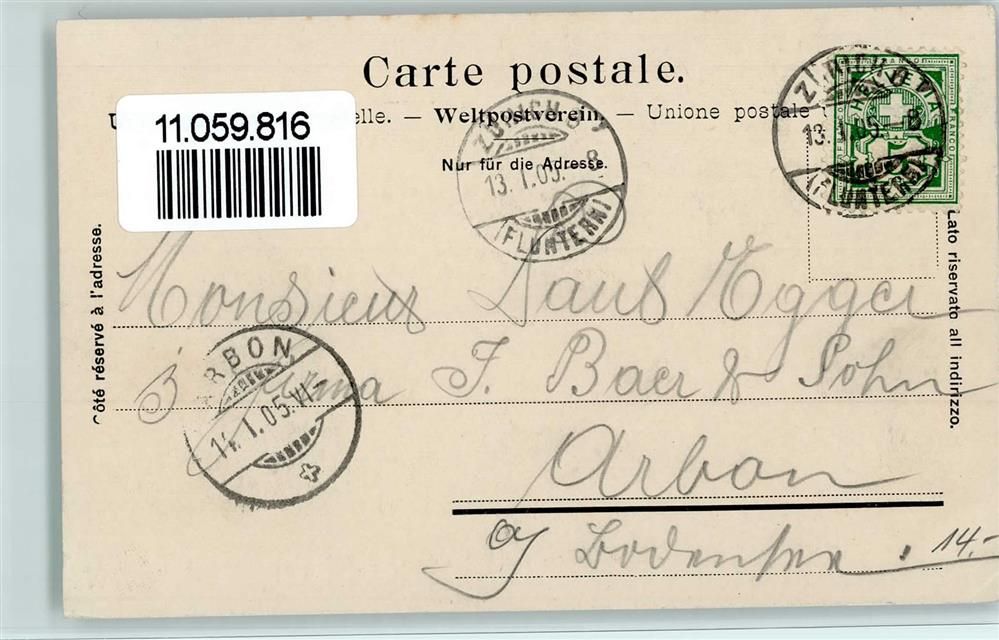 Carte postale.
elle. — Weltpostverein. — Unione postale
Nur für die Adresse.
11.059.816
ZÜRICH 9
13. I. 05. - 8
(FLUNTERN)
ZÜRICH
13. I. 05. - 8
(FLUNTERN)
HELVETIA
FRANCO
Côté réservé à l'adresse.
Lato riservato all indirizzo.
Monsieur Paul Egger
Firma J. Baer & Sohn
Arbon
a/ Bodensee. 14.-
ARBON
14. I. 05. VI-